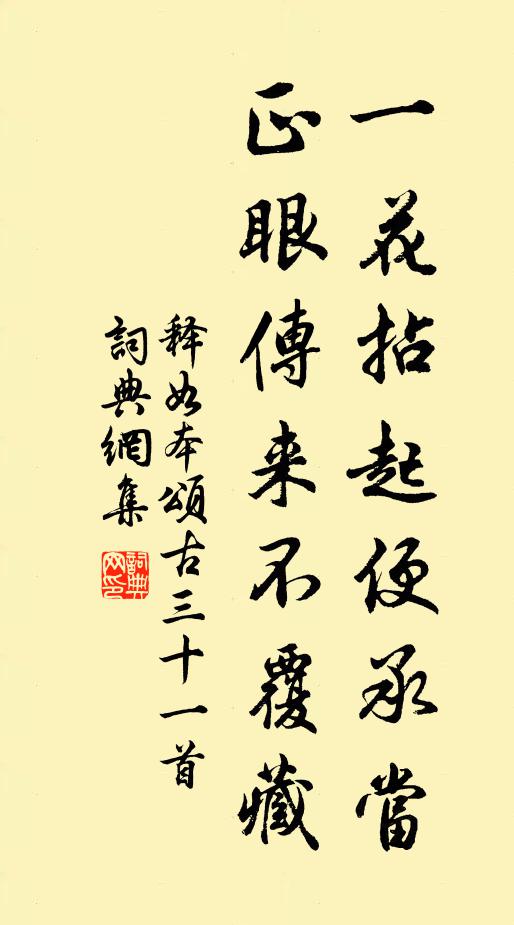 一花拈起便承當
正眼傳来不覆藏
释如本頌古三十一首
詞典網集
詞典网印